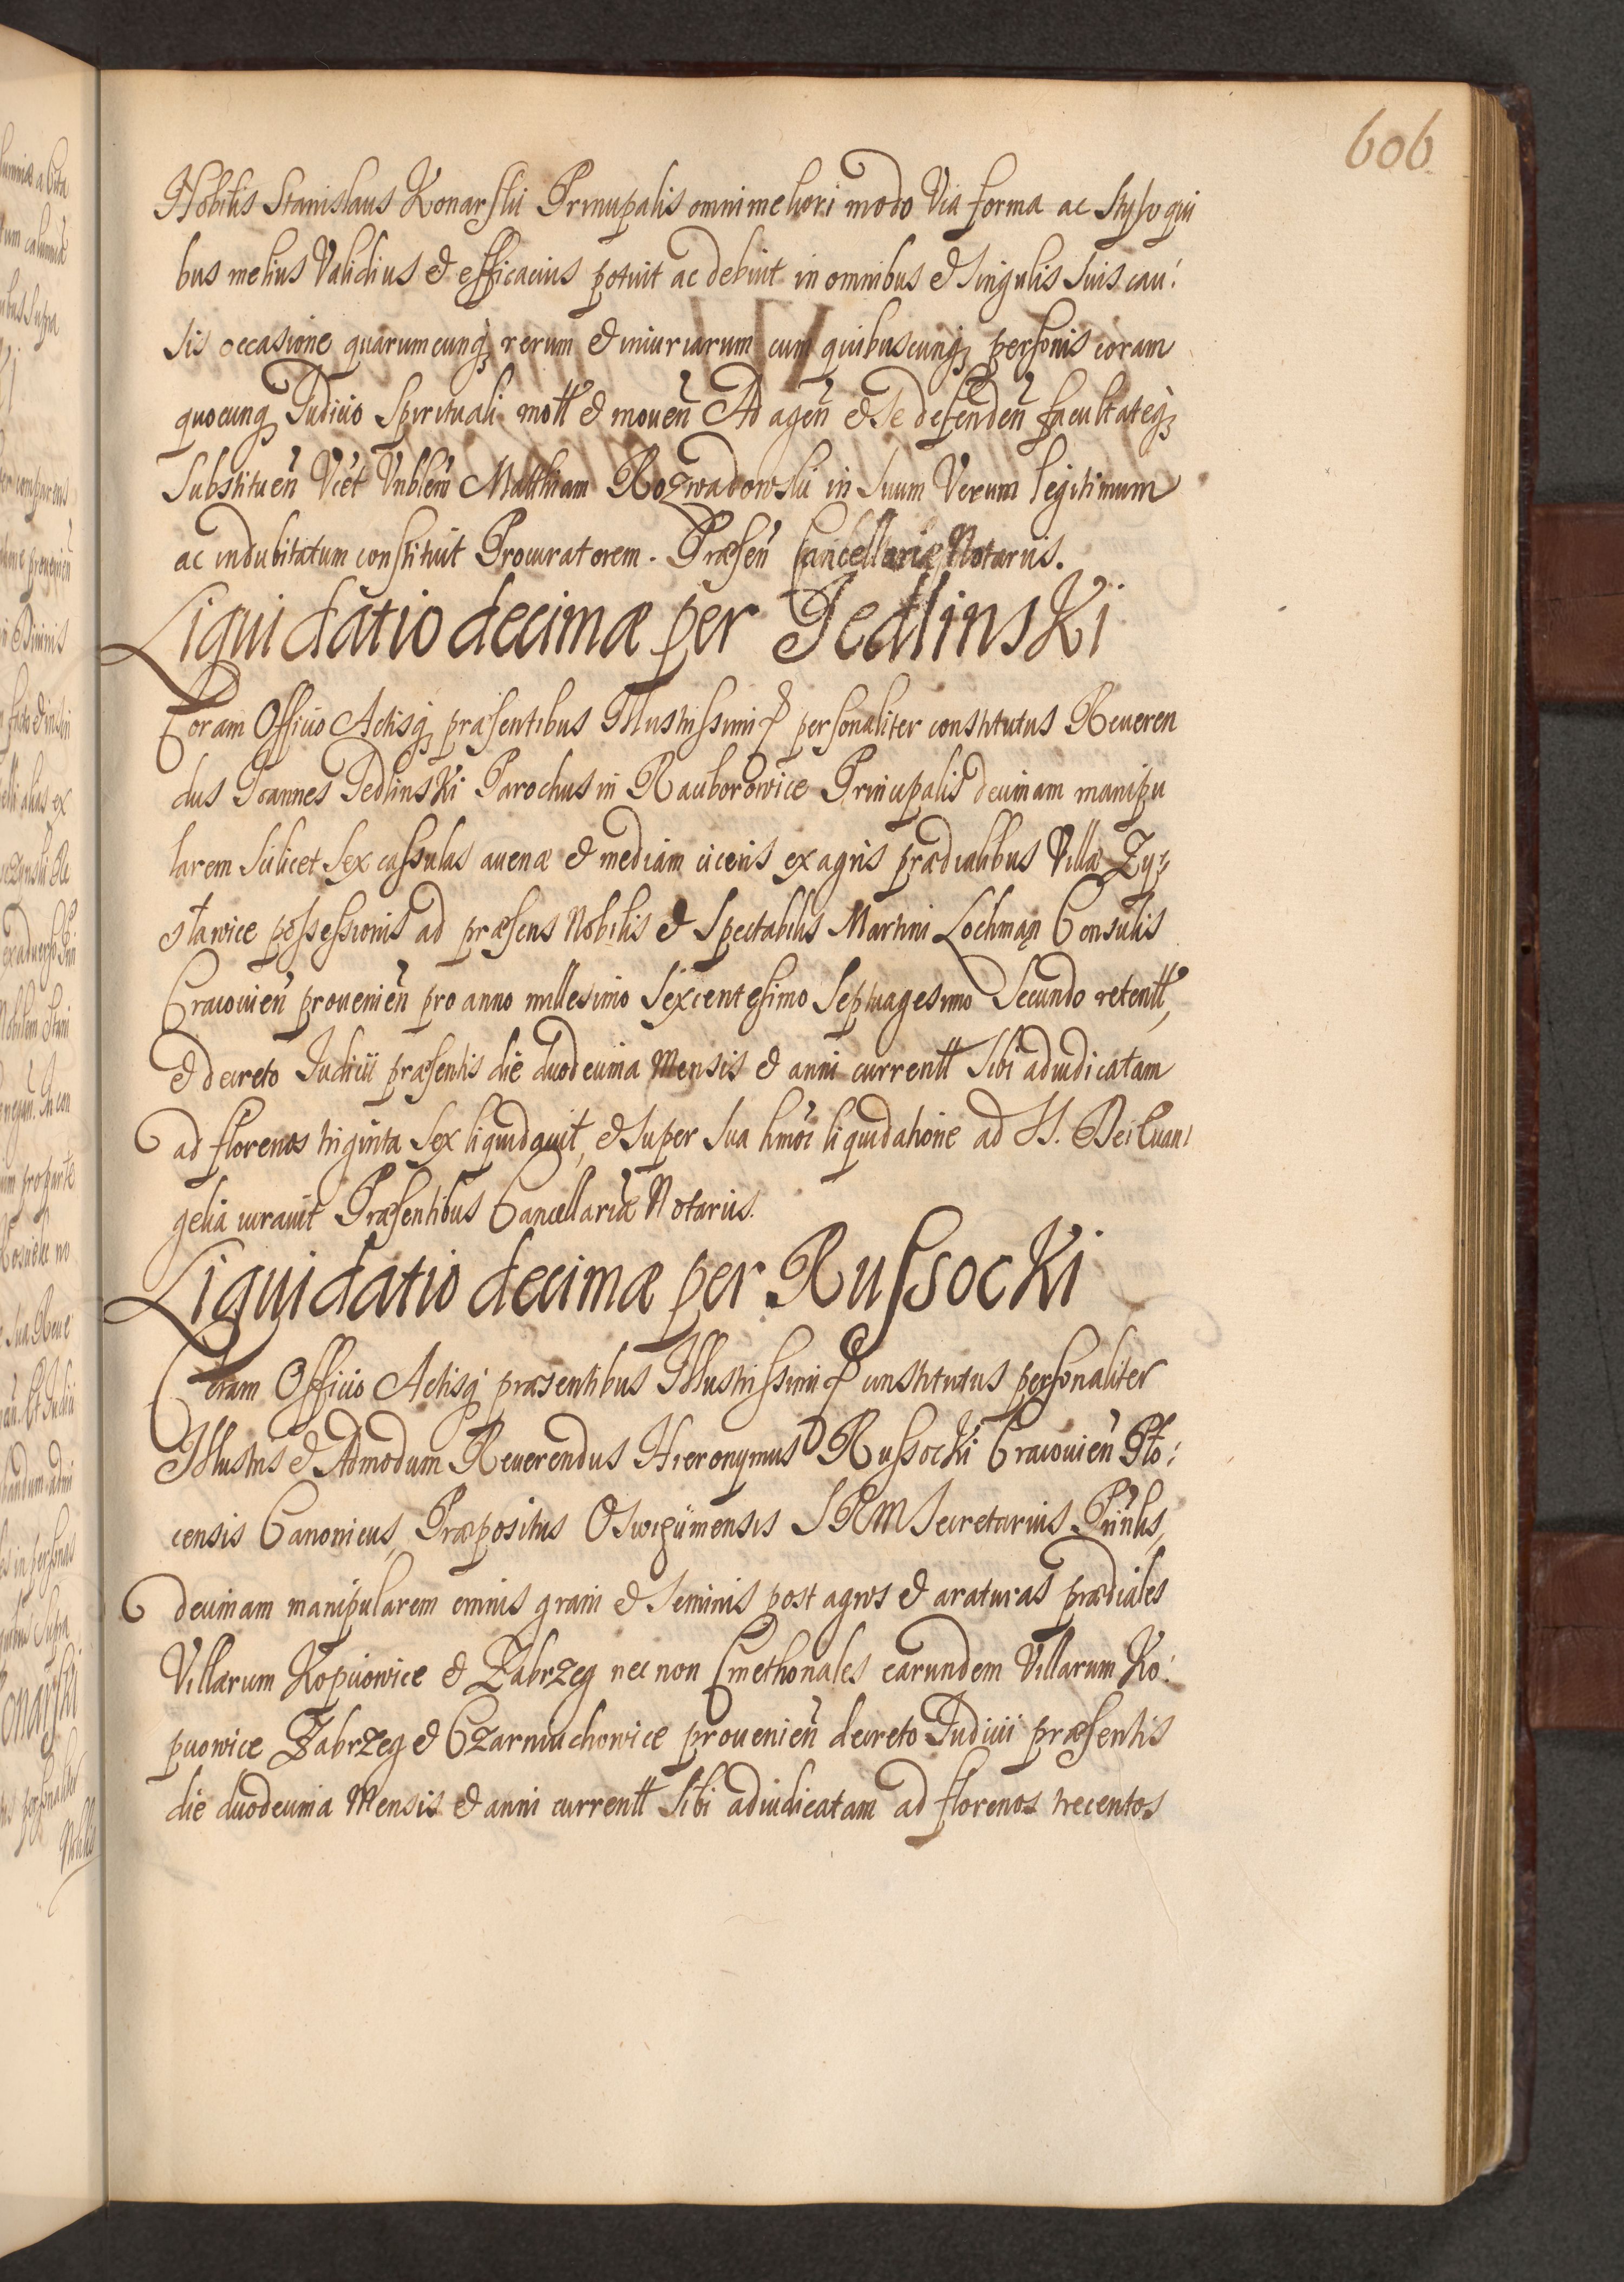 606
Nobilis Stanislaus Konarski Principalis omni meliori modo Via forma ac stylo qui
bus melius Validius et efficacius potuit ac debuit in omnibus et singulis suis cau:
sis occasione quarumcunq; rerum et iniuriarum cum quibuscunq; personis coram
quocunq; Judicio Spirituali mott et mouen Ad agen et se defenden facultateq;
substituen Vtet Vnblem Matthiam Rozwadowski in suum Verum legitimum
ac indubitatum constituit Procuratorem. Præsen Cancellariæ Notariis.
Liquidatio decimæ per Jedlinski
Coram Officio Actisq; præsentibus Illustrissimi p personaliter constitutus Reueren
dus Joannes Jedlinski Parochus in Raciborowice Principalis decimam manipu
larem scilicet sex cassulas auenæ et mediam ciceris ex agris prædialibus Villæ Zy:
stawice possessionis ad præsens Nobilis et Spectabilis Martini Lochman Consulis
Cracouien prouenien pro anno millesimo sexcentesimo septuagesimo secundo retentt,
et decreto Judicii præsentis die duodecima Mensis et anni currentt sibi adiudicatam
ad florenos triginta sex liquidauit, et super sua hmoi liquidatione ad SS. Dei Euan:
gelia iurauit Præsentibus Cancellariæ Notariis.
Liquidatio decimæ per Russocki
Coram Officio Actisq; præsentibus Illustrissimi p constitutus personaliter
Illustris et Admodum Reuerendus Hieronymus Russocki Cracouien Plo:
censis Canonicus, Præpositus Oswięcimensis SRM Secretarius Prinlis,
decimam manipularem omnis grani et seminis post agros et araturas prædiales
Villarum Kopciowice et Zabrzeg nec non Cmethonales earundem Villarum Ko:
pciowice Zabrzeg et Czarnuchowice prouenien decreto Judicii præsentis
die duodecima Mensis et anni currentt sibi adiudicatam ad florenos trecentos